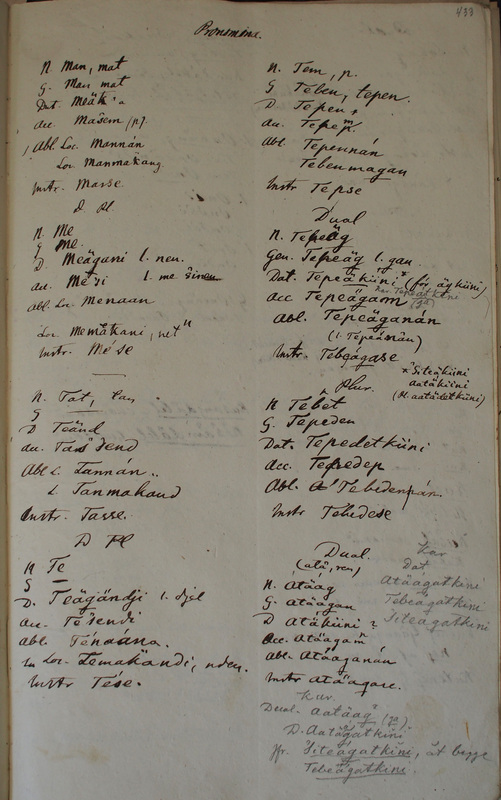 433
Pronomina.
N. Man, mat
G. Man mat
Dat. Meäk
Acc Masem (p)
Abl Loc. Mannán
Loc Manmakang
Instr. Masse
D. Pl.
N. Me
G Me.
D. Meägani l. neu.
Acc. Mesi l. me
Abl. Loc. Menaan
Loc. Memäkani, net
Instr. Mése
N. Tat, tan
G —
D Teänd
Acc. Tas send
Abl L. Tannán
L. Tanmakand
Instr. Tasse.
D Pl
N Te
G —
D. Teägändji l. djel
Acc. Tesendi
Abl. Tenaäna.
Loc. Temakändi, nden.
Instr Tése.
N. Tem, p.
G Teben, tepen.
D. Tepen
Acc. Tepep.
Abl. Tepennán
Tebenmagan
Instr Tepse
Dual
N. Tepeäg
Gen. Tepeäg l. gan
Dat. Tepeäküni (för ägküni)
Acc Tepeägam
Abl. Tepeäganán
(l. Tepeäsnän)
Instr. Tebeägase
Siteäküni
aatäküni
(Pl. aatädetküni)
Plur.
N Tebet
G. Tepeden
Dat. Tepedetküni
Acc. Tepedep
Abl. Tebedennán.
Instr Tebedese
Dual.
(atä, ren)
N. Atäag
G. Atäagan
D Atäküni ?
Acc. Atäagam
Abl. Atäaganán
Instr Atäagase.
Kar
Dat
Atäägatkini
Tebeägatkini
Siteägatkini
Kar.
Dual. Aatäag (ga)
D. Aatägatkini
Jfr. Siteägatkini, åt begge
Tebeägatkini.